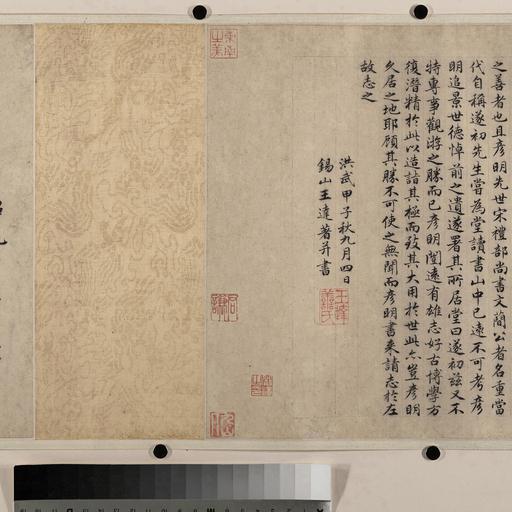 之善者也且彦明先世宋禮部尚書文簡公者名重當
代自稱遂初先生當為堂讀書山中已遠不可考彦
明追景世德悼前之遺遂署其所居堂曰遂初茲又不
特專事觀游之勝而已彦明閎遠有雄志好古博學方
復潛精於此以造詣其極而致其大用於世此亦豈彦明
久居之地耶顧其勝不可使之無聞而彦明書来請志於左
故志之
洪武甲子秋九月四日
錫山王達著并書